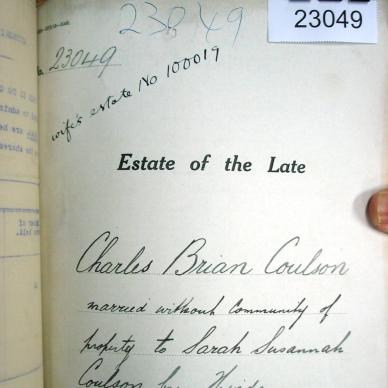 23049
23049
No. 23049
wife's estate No 100019
Estate of the Late
Charles Brian Coulson
married without Community of
property to Sarah Susannah
Coulson born